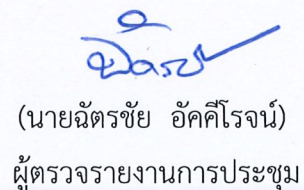 (นายฉัตรชัย อัคคีโรจน์)
ผู้ตรวจรายงานการประชุม